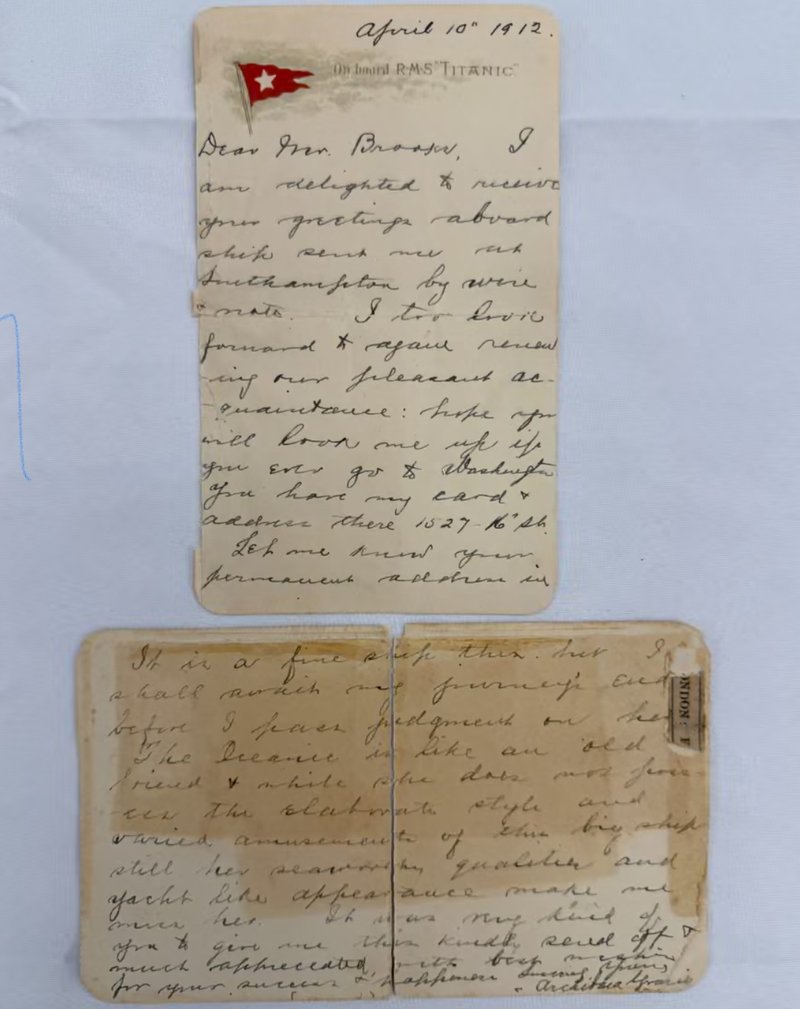 April 10" 1912.
On board RMS "TITANIC"
Dear Mr. Brooks, I
am delighted to receive
your greetings aboard
ship sent me at
Southampton by wire
& note. I too look
forward to again renew
-ing our pleasant ac-
-quaintance: hope you
will look me up if
you ever go to Washington
You have my card &
address there 1527-16" St.
Let me know your
permanent address in
It is a fine ship this. but I
shall await my journey's end
before I pass judgment on her
The Oceanic is like an old
friend & while she does not poss-
-ess the elaborate style and
varied amusements of this big ship
still her seaworthy qualities and
yacht like appearance make me
miss her. It was very kind of
you to give me this kindly send off &
much appreciated with best wishes
for your success & happiness
Archibald Gracie
ONDON